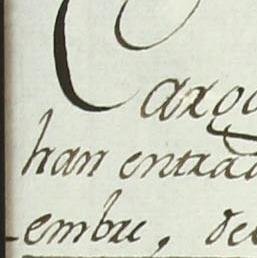 Cargo
han entrad
embre, del